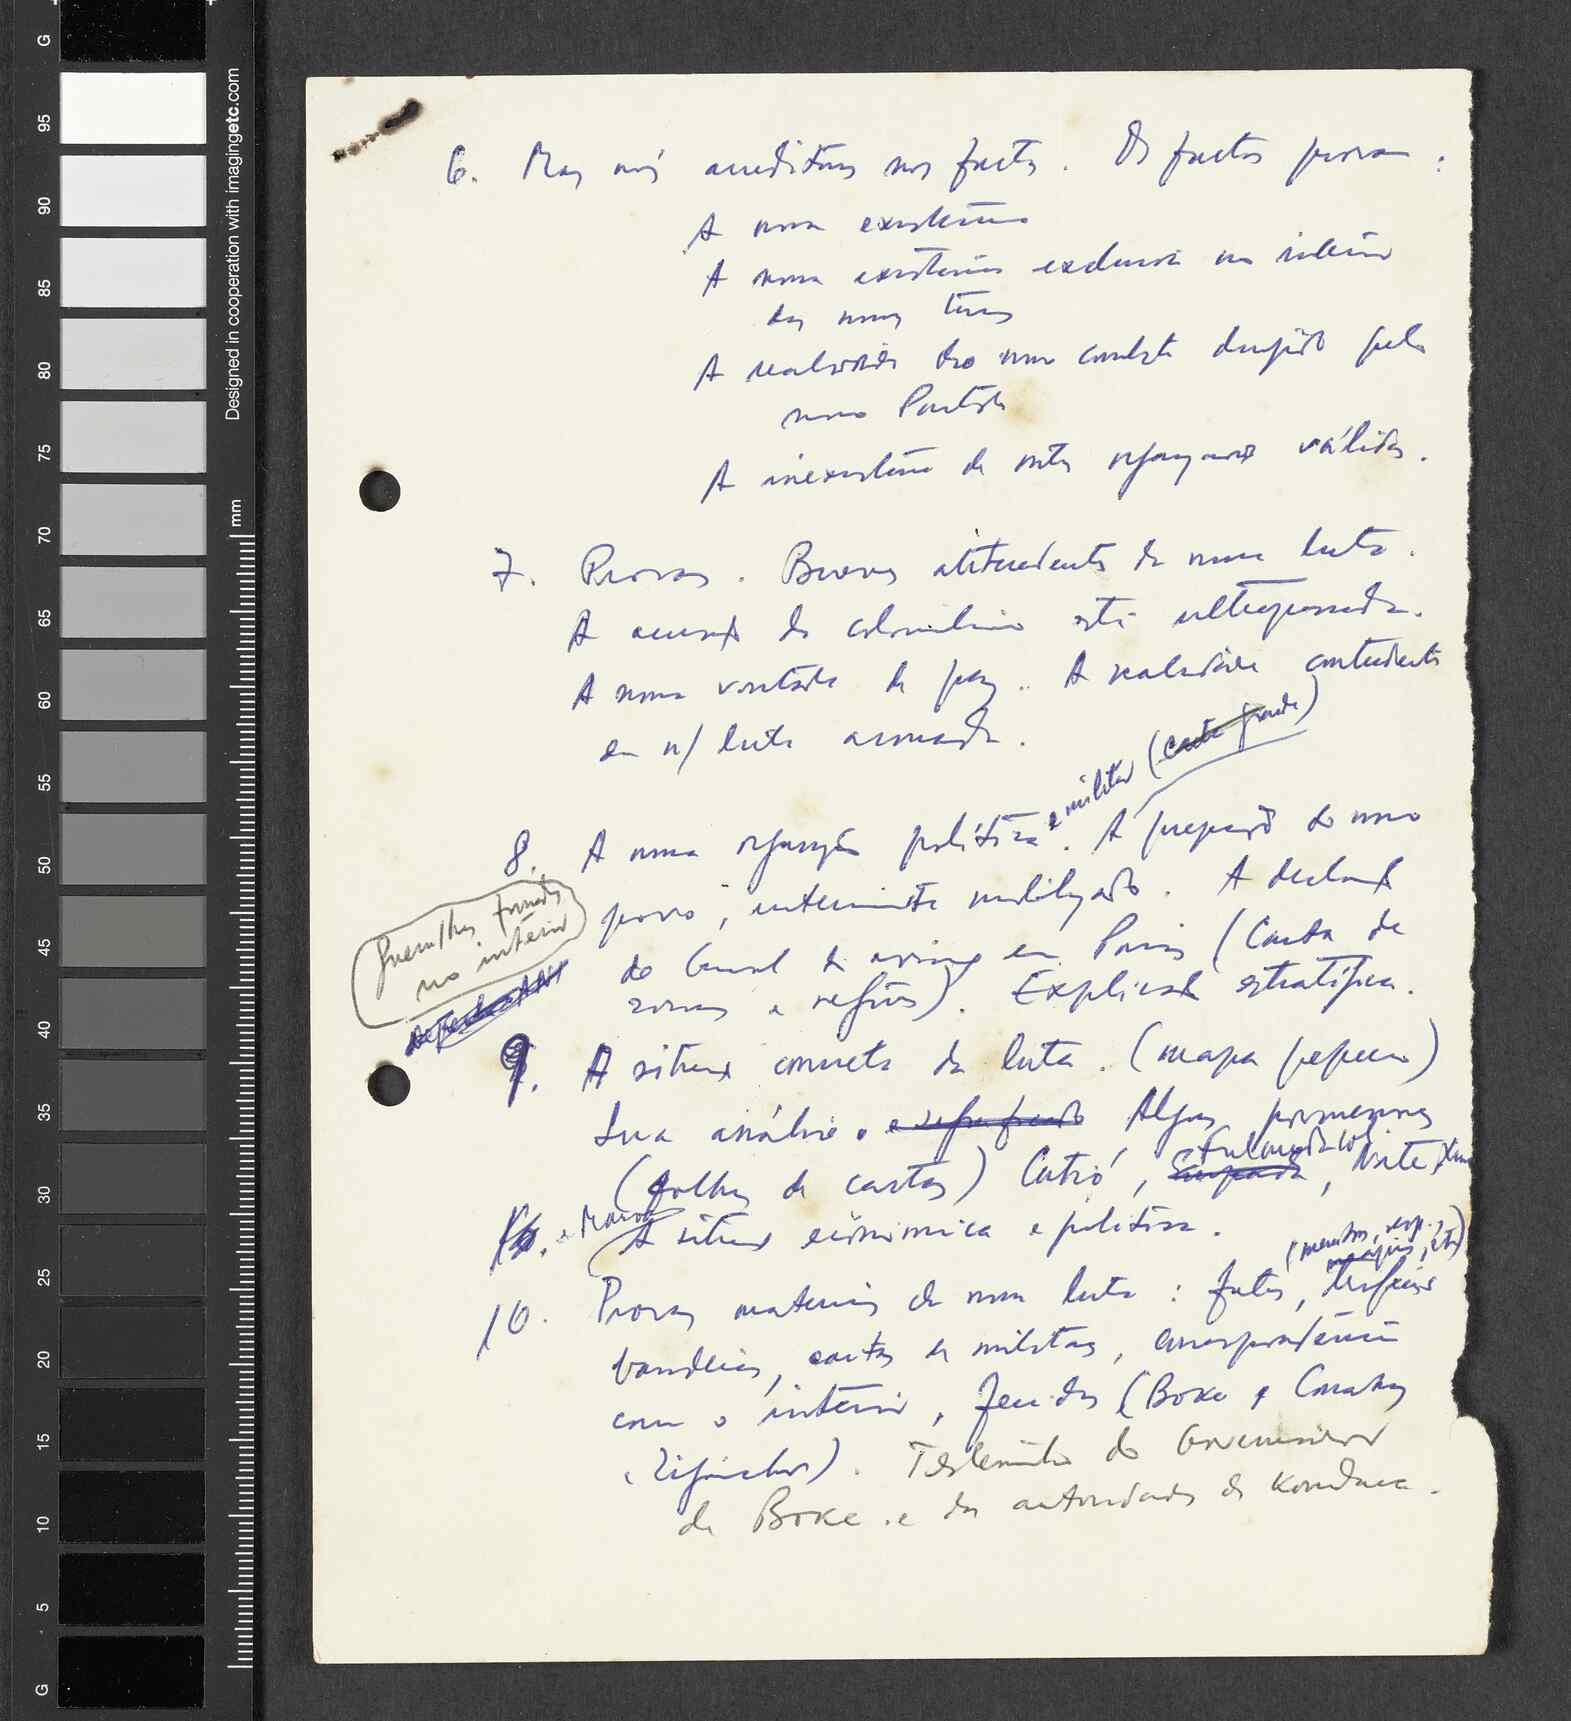 6. Mas nós acreditamos nos factos. Os factos provam:
A nossa existência
A nossa existência exclusiva no interior
das nossas terras
A realidade do nosso combate dirigido pelo
nosso Partido
A inexistência de outras organizações válidas.
7. Provas. Breves antecedentes da nossa luta.
A acusação do colonialismo está ultrapassada.
A nossa vontade de paz. A realidade
da n/ luta armada.
e militar (carta grande)
8. A nossa organização política. A preparação do nosso
povo, inteiramente mobilizado. A declaração
do em Paris (Carta de
zonas e regiões). Explicação estratégica.
Guerrilhas formadas
no interior
9. A situação concreta da luta. (mapa pequeno)
Sua análise. Alguns pormenores
Fulacunda
(folhas de cartas) Catió, , Norte,
A situação económica e política.
10. Provas materiais da nossa luta: fotos,
bandeiras, cartas de militares, correspondência
com o interior, feridos (Boké e Conakry
Ziguinchor). Testemunho do Governador
de Boké e das autoridades de Koundara.
Designed in cooperation with imagingetc.com
mm
G
95
90
85
80
75
70
65
60
55
50
45
40
35
30
25
20
15
10
5
G